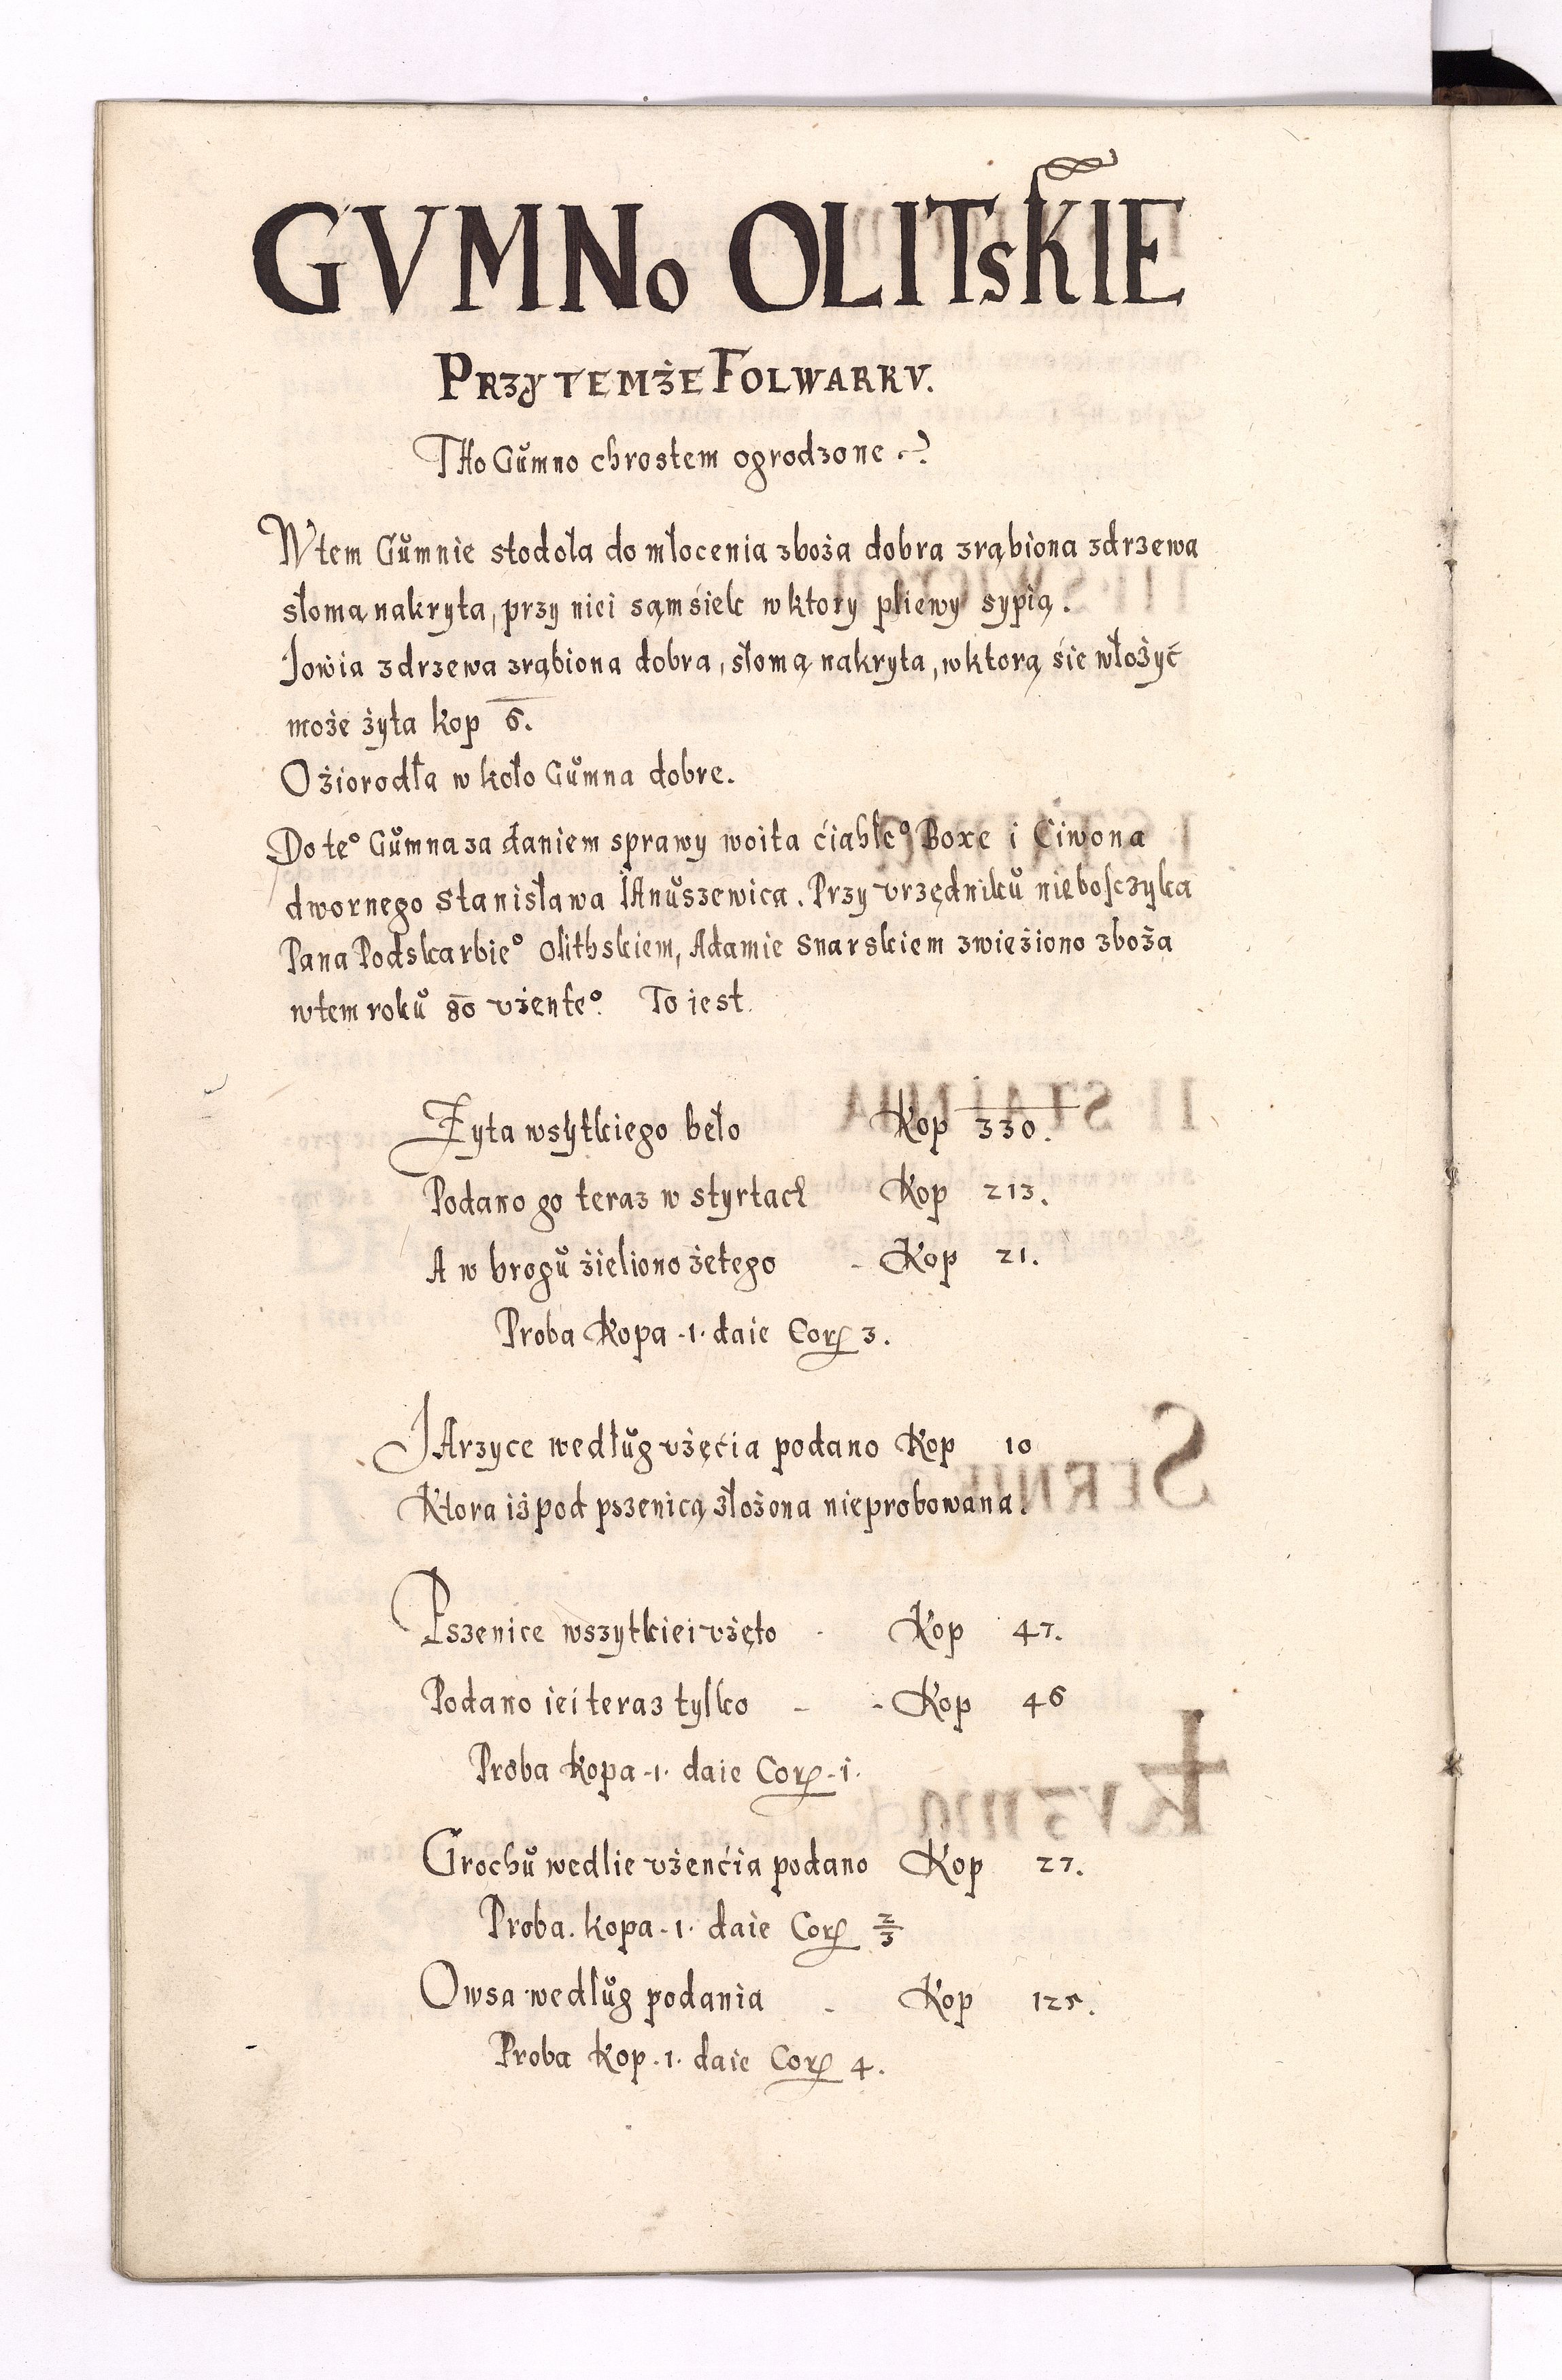 GVMNo OLITsKIE
PRZY TEMŻE FOLWARKV.
THo Gůmno chrostem ogrodzone
W tem Gůmnie stodoła do młocenia zboża dobra zrąbiona zdrzewa
słomą nakryta, przy niei sąmsiek w ktory pliewy sypią.
Jowia zdrzewa zrąbiona dobra, słomą nakryta, w ktorą sie włożyć
może żyta kop 6.
Oziorodła w koło Gůmna dobre.
Do te° Gůmna za daniem sprawy woita ciahłe° Boxe i Ciwona
dwornego Stanisława IAnůszewica. Przy vrzędniků nieboſczyka
Pana Podskarbie° Olithskiem, Adamie Snarskiem zwieziono zboża
w tem roků 80 vżente° To iest.
Żyta wsÿtkiego beło Kop 330.
Podano go teraz w styrtach Kop 213.
A w brogů zieliono żetego - Kop 21.
Proba Kopa .1. daie Corꝭ 3.
JArzyce według vżęcia podano Kop 10
Ktora iż pod pszenicą złożona nieprobowana.
Pszenice wszytkiei vżęto - Kop 47.
Podano iei teraz tylko - - Kop 46
Proba kopa .1. daie Corꝭ .1.
Grochů wedlie vżencia podano Kop 27.
Proba. kopa .1. daie Corꝭ 2/3
Owsa według podania - Kop 125.
Proba kop .1. daie Corꝭ 4.